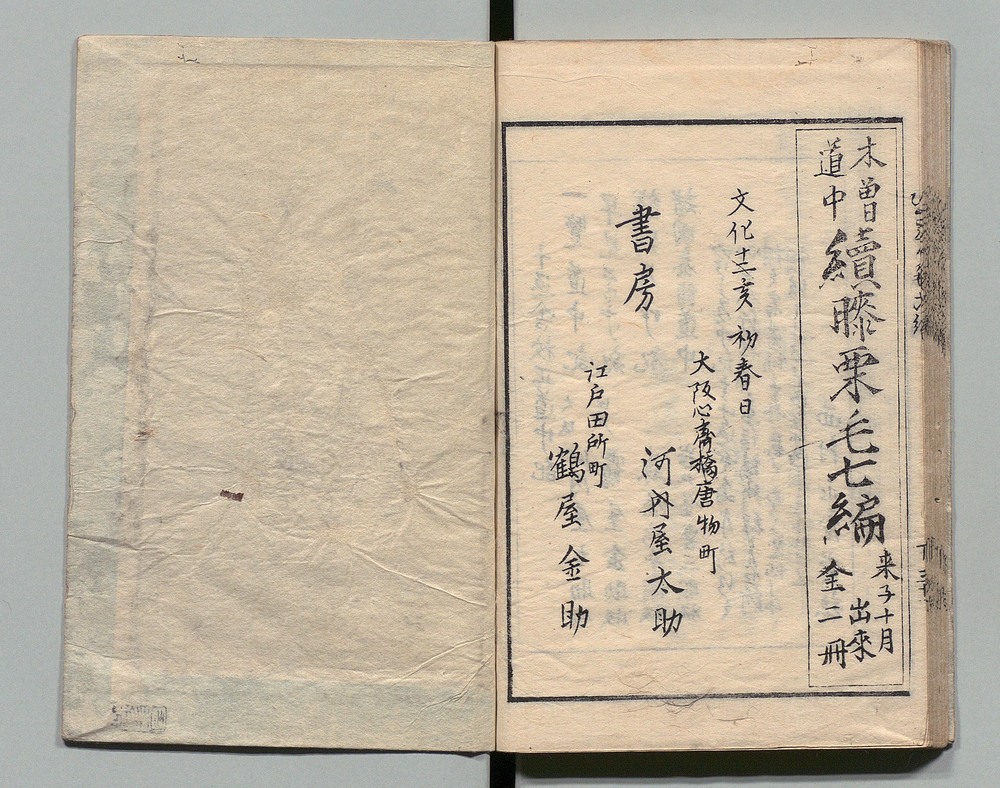 木曽
道中
續膝栗毛七編
来子十月
出来
全二冊
文化十二亥初春日
大阪心斎橋唐物町
河内屋太助
書房
江戸田所町
鶴屋金助